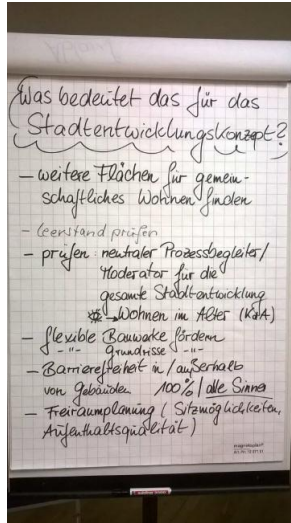 Was bedeutet das für das
Stadtentwicklungskonzept?
- weitere Flächen für gemein-
schaftliches Wohnen finden
- Leerstand prüfen
- prüfen: neutraler Prozessbegleiter/
Moderator für die
gesamte Stadtentwicklung
→ Wohnen im Alter (KdA)
- flexible Bauwerke fördern
- " - Grundrisse - " -
- Barrierefreiheit in / außerhalb
von Gebäuden 100% / alle Sinne
- Freiraumplanung (Sitzmöglichkeiten,
Aufenthaltsqualität)